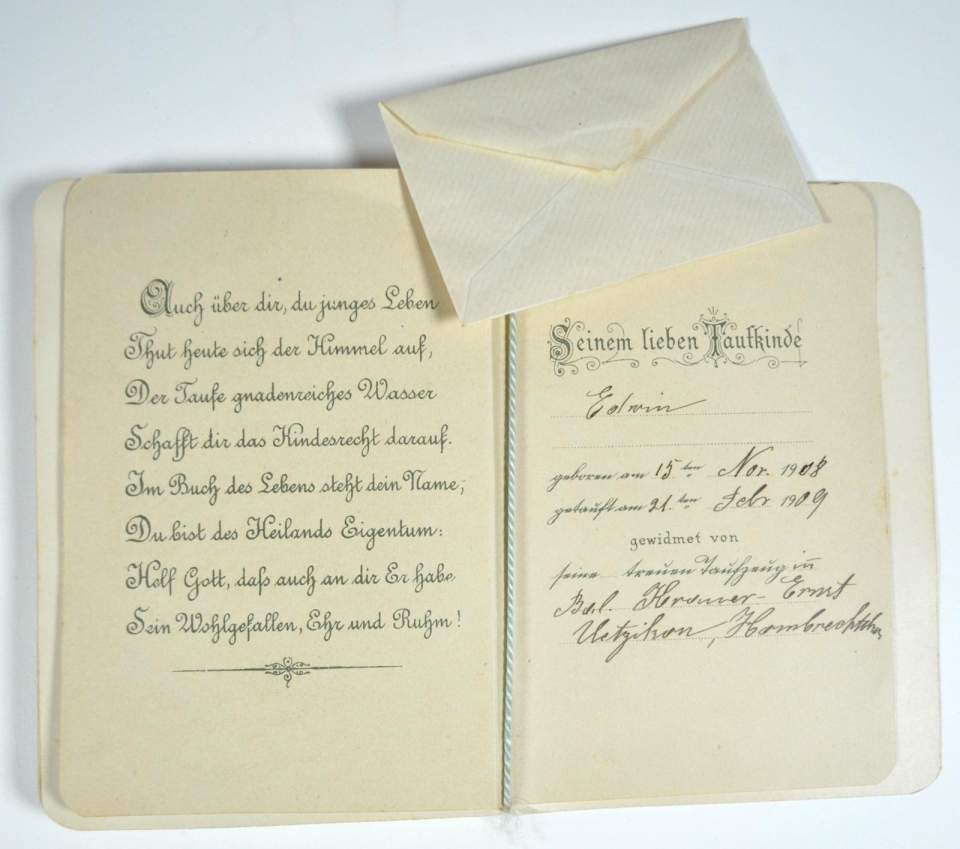 Auch über dir, du junges Leben
Thut heute sich der Himmel auf,
Der Taufe gnadenreiches Wasser
Schafft dir das Kindesrecht darauf.
Im Buch des Lebens steht dein Name,
Du bist des Heilands Eigentum:
Helf Gott, daß auch an dir Er habe
Sein Wohlgefallen, Ehr und Ruhm!
Seinem lieben Taufkinde
Edwin
geboren am 15. ten Nov. 1908
getauft am 21. ten Febr 1909
gewidmet von
seine treuen Taufzeugin
Kramer-Ernst
Uetzikon, Hombrechtikon